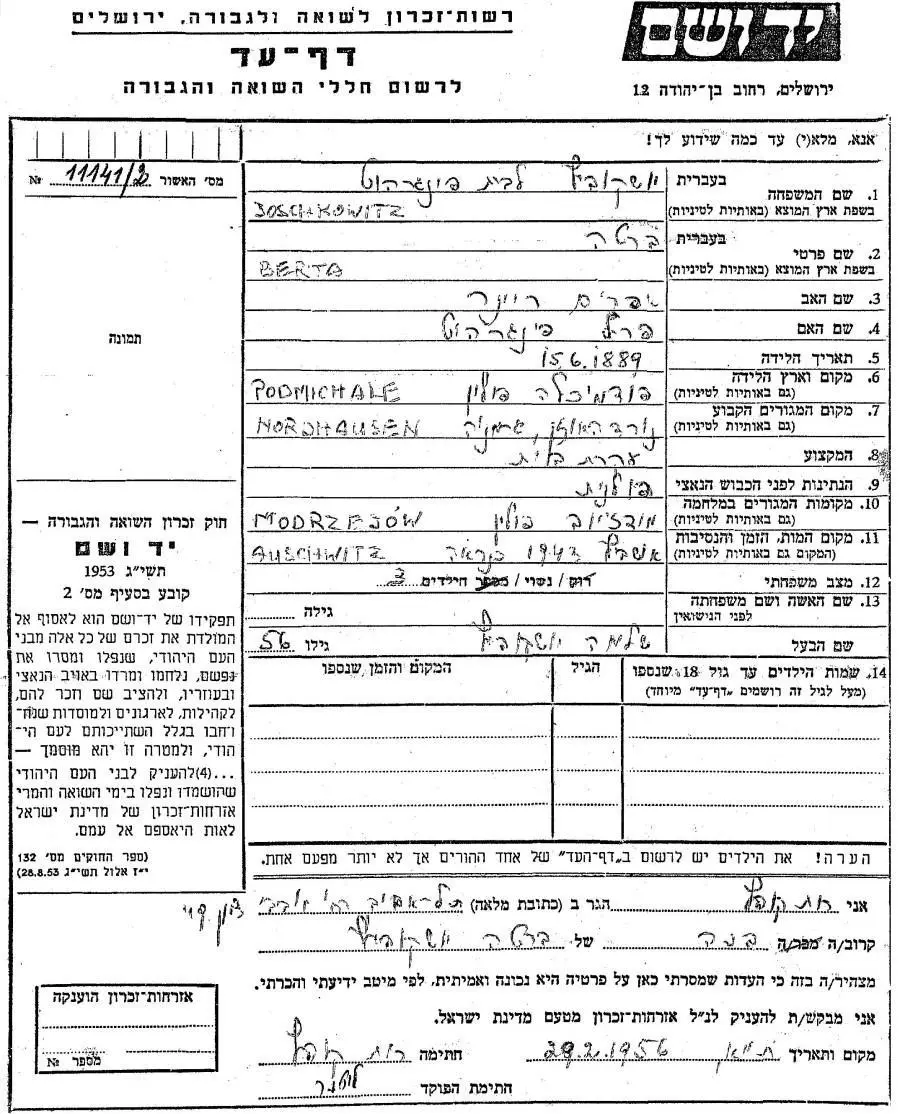 רשות־זכרון לשואה ולגבורה, ירושלים
דף־עד
לרשום חללי השואה והגבורה
יד ושם
ירושלים, רחוב בן־יהודה 12
אנא, מלא(י) עד כמה שידוע לך!
מס' האשור 11141/2 №
1. שם המשפחה בעברית יושקוביץ לבית פינגרהוט
בשפת ארץ המוצא (באותיות לטיניות) JOSCHKOWITZ
2. שם פרטי בעברית ברטה
בשפת ארץ המוצא (באותיות לטיניות) BERTA
3. שם האב
4. שם האם פרל פינגרהוט
5. תאריך הלידה 15.6.1889
6. מקום וארץ הלידה (גם באותיות לטיניות) פודמיכלה פולין PODMICHALE
7. מקום המגורים הקבוע (גם באותיות לטיניות) נורדהאוזן, גרמניה NORDHAUSEN
8. המקצוע עקרת בית
9. הנתינות לפני הכבוש הנאצי פולנית
10. מקומות המגורים במלחמה (גם באותיות לטיניות) מודז'יוב פולין MODRZEJÓW
11. מקום המות, הזמן והנסיבות (המקום גם באותיות לטיניות) אושביץ 1943 כנראה AUSCHWITZ
12. מצב משפחתי רוק/ נשוי/ מספר הילדים 3
13. שם האשה ושם משפחתה לפני הנישואין גילה
שם הבעל שלמה יושקוביץ גילו 56
14. שמות הילדים עד גיל 18 שנספו (מעל לגיל זה רושמים "דף־עד" מיוחד)
הגיל
המקום והזמן שנספו
תמונה
חוק זכרון השואה והגבורה —
יד ושם
תשי״ג 1953
קובע בסעיף מס' 2
תפקידו של יד־ושם הוא לאסוף אל
המולדת את זכרם של כל אלה מבני
העם היהודי, שנפלו ומסרו את
נפשם, נלחמו ומרדו באויב הנאצי
ובעוזריו, ולהציב שם וזכר להם,
לקהילות, לארגונים ולמוסדות שנח־
רבו בגלל השתייכותם לעם הי־
הודי, ולמטרה זו יהא מוסמך —
...(4)להעניק לבני העם היהודי
שהושמדו ונפלו בימי השואה והמרי
אזרחות־זכרון של מדינת ישראל
לאות היאספם אל עמם.
(ספר החוקים מס' 132
י״ז אלול תשי״ג 28.8.53)
הערה! את הילדים יש לרשום ב„דף־העד" של אחד ההורים אך לא יותר מפעם אחת.
אני רות הגר ב (כתובת מלאה) תל־אביב רח'
קרוב/ה מכר/ה בתה של ברטה יושקוביץ
מצהיר/ה בזה כי העדות שמסרתי כאן על פרטיה היא נכונה ואמיתית, לפי מיטב ידיעתי והכרתי.
אני מבקש/ת להעניק לנ״ל אזרחות־זכרון מטעם מדינת ישראל.
מקום ותאריך ת״א 29.2.1956 חתימה רות
חתימת הפוקד
אזרחות־זכרון הוענקה
מספר №